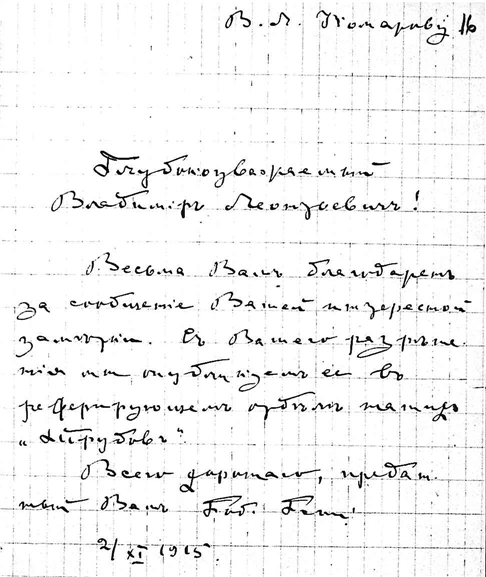 В. Л. Комарову 16
Глубокоуважаемый
Владимiръ Леонтьевичъ!
Весьма Вамъ благодаренъ
за сообщенiе Вашей интересной
замѣтки. Съ Вашего разрѣше-
нiя мы опубликуемъ ее въ
реферирующемъ отдѣлѣ нашихъ
„Трудовъ“.
Всего хорошаго, предан-
ный Вамъ Роб.
2/XI 1915.